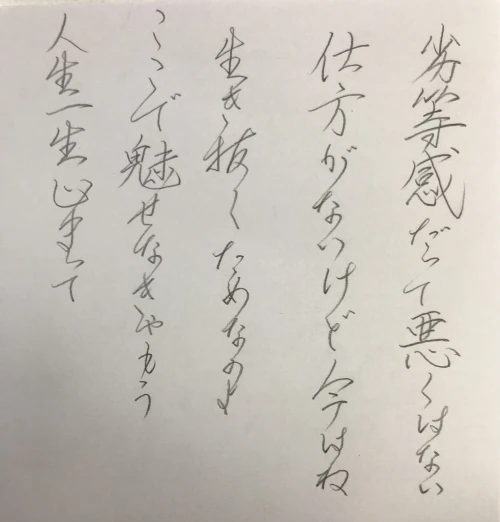 劣等感だって悪くはない
仕方がないけど今はね
生き抜くためなのよ
ここで魅せなきゃもう
人生一生